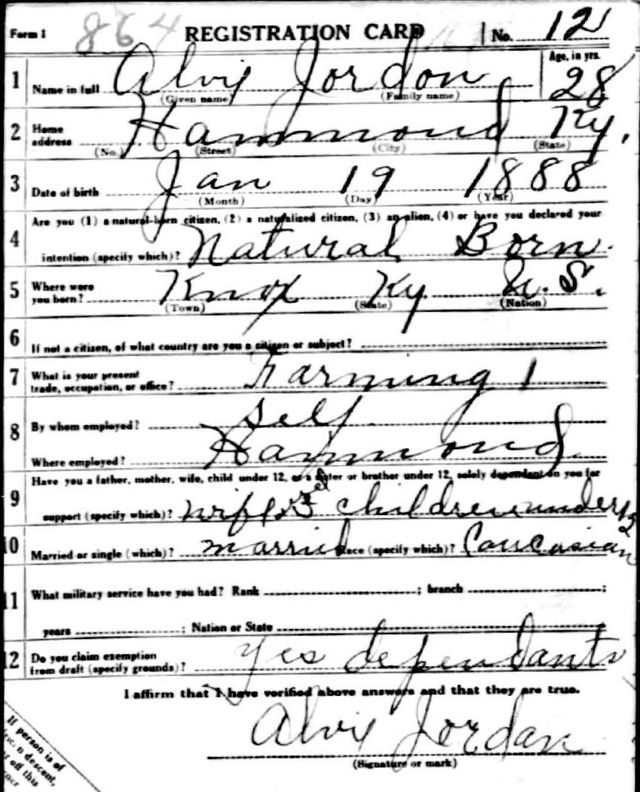 Form 1 864 REGISTRATION CARD No. 12
1 Name in full Alvis Jordon Age, in yrs. 28
(Given name) (Family name)
2 Home address Hammond Ky.
(No.) (Street) (City) (State)
3 Date of birth Jan 19 1888
(Month) (Day) (Year)
4 Are you (1) a natural-born citizen, (2) a naturalized citizen, (3) an alien, (4) or have you declared your
intention (specify which)? Natural Born.
5 Where were you born? Knox Ky U.S.
(Town) (State) (Nation)
6 If not a citizen, of what country are you a citizen or subject?
7 What is your present trade, occupation, or office? Farming 1
8 By whom employed? Self
Where employed? Hammond
9 Have you a father, mother, wife, child under 12, or a sister or brother under 12, solely dependent on you for
support (specify which)? wife & 3 children under 12
10 Married or single (which)? married Race (specify which)? Caucasian
11 What military service have you had? Rank ; branch ;
years ; Nation or State
12 Do you claim exemption from draft (specify grounds)? Yes dependants
I affirm that I have verified above answers and that they are true.
Alvis Jordan
(Signature or mark)
If person is of
descent,
off this